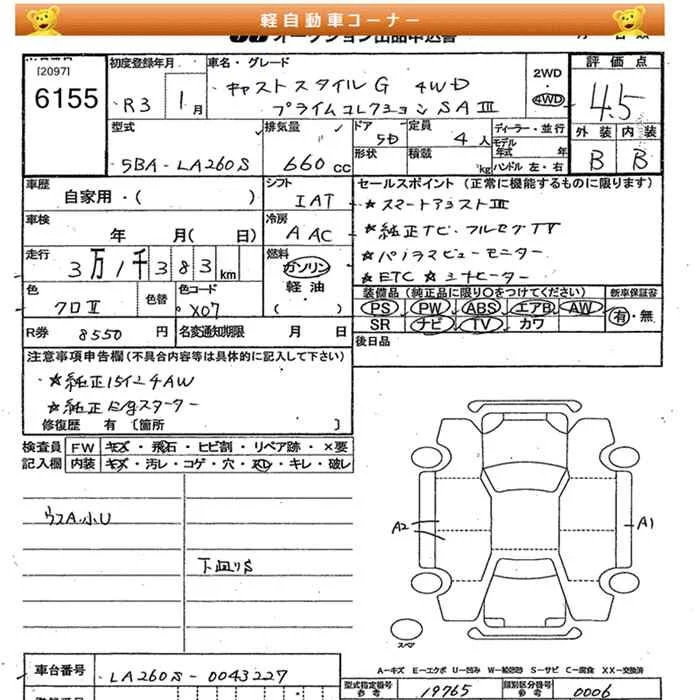 軽自動車コーナー
オークション出品申込書
[2097]
6155
初度登録年月
R3 1月
車名・グレード
キャストスタイルG 4WD
プライムコレクション SAⅢ
2WD
・
4WD
評価点
4.5
外装 内装
B B
型式
5BA-LA260S
排気量
660cc
ドア 5D
定員 4人
形状
積載 kg
ディーラー・並行
モデル年式 年
ハンドル 左・右
車歴
自家用・( )
シフト
IAT
車検
年 月( 日)
冷房
A AC
走行
3万1千383km
燃料
ガソリン
軽油
( )
色
クロⅡ
色替
色コード
X07
R券 8550円
名変通知期限 月 日
セールスポイント (正常に機能するものに限ります)
★スマートアシストⅢ
★純正ナビ・フルセグTV
★パノラマビューモニター
★ETC ★シートヒーター
装備品(純正品に限り○をつけてください)
PS PW ABS エアB AW
SR ナビ TV カワ
新車保証書
有・無
後日品
注意事項申告欄(不具合内容等は具体的に記入して下さい)
★純正15インチAW
★純正E/gスターター
修復歴 有 〔箇所 〕
検査員
記入欄
FW キズ・飛石・ヒビ割・リペア跡・×要
内装 キズ・汚レ・コゲ・穴・スレ・キレ・破レ
ウスA.小U
下廻りS
A2
A1
スペア
A-キズ E-エクボ U-凹み W-補修跡 S-サビ C-腐食 XX-交換済
車台番号
LA260S-0043227
型式指定番号
参考
19765
類別区分番号
参考
0006